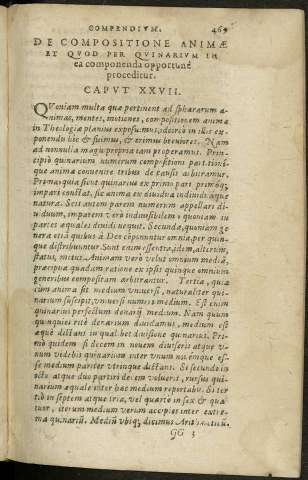 COMPENDIVM. 469
DE COMPOSITIONE ANIMÆ
ET QVOD PER QVINARIVM IN
ea componenda opportunè
proceditur.
CAPVT XXVII.
QVoniam multa quæ pertinent ad sphærarum a-
nimas, mentes, motiones, compositionem animæ
in Theologia planius exposuimus, idcirco in illis ex-
ponendis hic & fuimus, & erimus breuiores. Nam
ad nonnulla magis propria iam properamus. Prin-
cipiò quinarium numerum compositioni partitioniq́;
animæ conuenire tribus de causis arbitramur.
Prima quia sicut quinarius ex primo pari primoq́;
impari constat, sic anima ex diuidua indiuiduaque
natura. Scis autem parem numerum appellari di-
uiduum, imparem verò indiuisibilem: quoniam in
partes æquales diuidi nequit. Secunda, quoniam ge
nera entis quibus à Deo componuntur omnia, per quin-
que distribuuntur. Sunt enim essentia, idem, alterum,
status, motus. Animam verò velut omnium mediã,
præcipua quadam ratione ex ipsis quinque omnium
generibus compositam arbitrantur. Tertia, quia
cùm anima sit medium vniuersi, naturaliter qui-
narium suscipit, vniuersi numeri medium. Est enim
quinarius perfectum denarij medium. Nam quum
quinquies ritè denarium diuidamus, medium est
æquè distans in qualibet diuisione quinarius. Pri-
mò quidem si decem in nouem diuiseris atque vnum
videbis quinarium inter vnum nouemque es-
se medium pariter vtrinque distans. Si secundò in
octo atque duo partiri decem volueris, rursus qui-
narium æqualiter inter hæc medium reportabis. Si ter
tiò in septem atque tria, vel quartò in sex & qua-
tuor, iterum medium verum accipies inter extre-
ma quinariũ. Mediũ vbiq́; dicimus Arithmeticũ.
GG 3